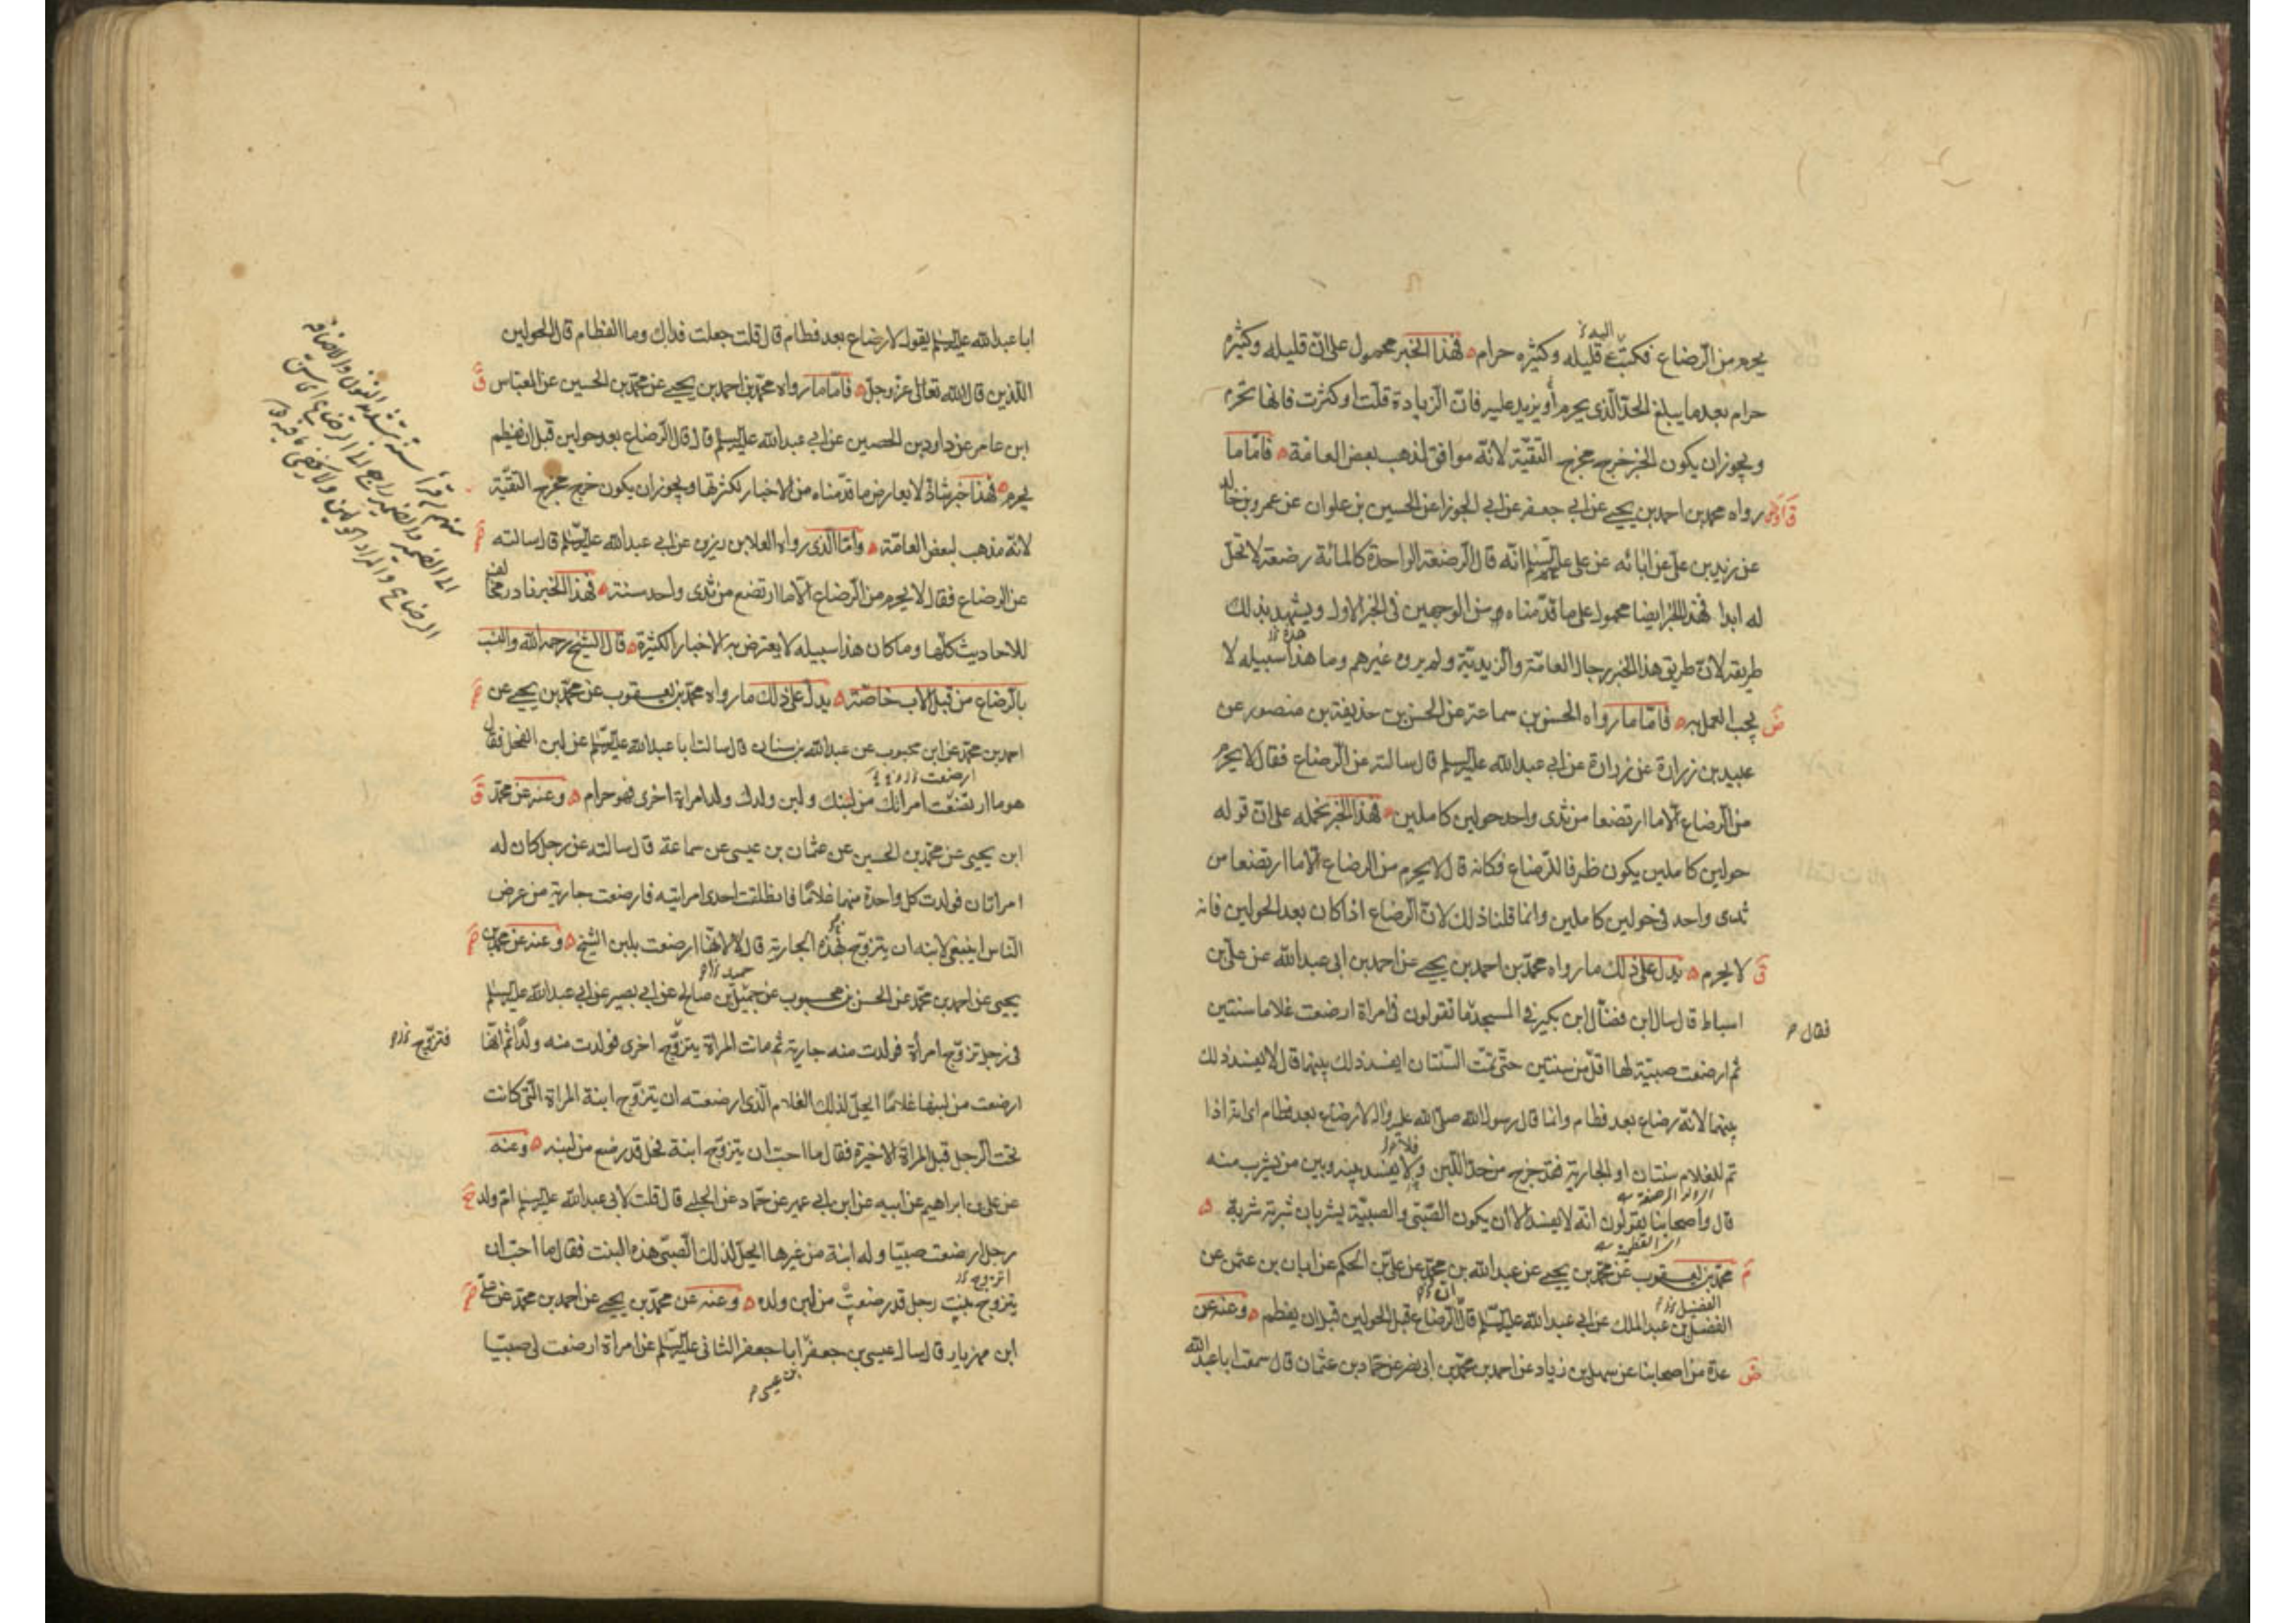 يحرم من الرضاع فكتب ع قليله وكثيره حرام فهذا الخبر محمول على ان قليله وكثيره
حرام بعد ما يبلغ الحد الذى يحرم أو يزيد عليه فان الزيادة قلت او كثرت فانها تحرم
ويجوز ان يكون الخبر خرج مخرج التقية لانه موافق لمذهب بعض العامة فاما ما
رواه محمد بن احمد بن يحيى عن ابى جعفر عن ابى الجوزا عن الحسين بن علوان عن عمرو بن خالد
عن زيد بن على عن ابائه عن على عليه السلم انه قال الرضعة الواحدة كالمائة رضعة لا تحل
له ابدا فهذا الخبر ايضا محمول على ما قدمناه من الوجهين فى الخبر الاول ويشهد بذلك
طريقه لان طريق هذا الخبر رجال العامة والزيدية ولم يروه غيرهم وما هذا سبيله لا
يجب العمل به فاما ما رواه الحسن بن سماعة عن الحسن بن حذيفة بن منصور عن
عبيد بن زرارة عن زرارة عن ابى عبد الله عليه السلم قال سالته عن الرضاع فقال لا يحرم
من الرضاع الا ما ارتضعا من ثدى واحد حولين كاملين فهذا الخبر نحمله على ان قوله
حولين كاملين يكون ظرفا للرضاع فكانه قال لا يحرم من الرضاع الا ما ارتضعا من
ثدى واحد فى حولين كاملين وانما قلنا ذلك لان الرضاع اذا كان بعد الحولين فانه
لا يحرم يدل على ذلك ما رواه محمد بن احمد بن يحيى عن احمد بن ابى عبد الله عن على بن
اسباط قال سال ابن فضال ابن بكير فى المسجد ما تقولون فى امراة ارضعت غلاما سنتين
فقال
ثم ارضعت صبية لها اقل من سنتين حتى تمت السنتان ايفسد ذلك بينهما قال لا يفسد ذلك
بينهما لانه رضاع بعد فطام وانما قال رسول الله صلى الله عليه واله لا رضاع بعد فطام اى انه اذا
تم للغلام سنتان او الجارية فقد خرج من حد اللبن ولا يفسد بينه وبين من يشرب منه
قال واصحابنا يقولون انه لا يفسد الا ان يكون الصبى والصبية يشربان شربة شربة
محمد بن يعقوب عن محمد بن يحيى عن عبد الله بن محمد عن على بن الحكم عن ابان بن عثمن عن
الفضل بن عبد الملك عن ابى عبد الله عليه السلم قال الرضاع قبل الحولين قبل ان يفطم وعنه عن
عدة من اصحابنا عن سهل بن زياد عن احمد بن محمد بن ابى نصر عن حماد بن عثمان قال سمعت ابا عبد الله
ابا عبد الله عليه السلم يقول لا رضاع بعد فطام قال قلت جعلت فداك وما الفطام قال الحولين
اللذين قال الله تعالى عز وجل فاما ما رواه محمد بن احمد بن يحيى عن محمد بن الحسين عن العباس
ابن عامر عن داود بن الحصين عن ابى عبد الله عليه السلم قال قال الرضاع بعد حولين قبل ان يفطم
يحرم فهذا خبر شاذ لا يعارض ما قدمناه من الاخبار لكثرتها ويجوز ان يكون خرج مخرج التقية
لانه مذهب لبعض العامة واما الذى رواه العلا بن رزين عن ابى عبد الله عليه السلم قال سالته
عن الرضاع فقال لا يحرم من الرضاع الا ما ارتضع من ثدى واحد سنة فهذا الخبر نادر مخالف
للاحاديث كلها وما كان هذا سبيله لا يعترض به الاخبار الكثيرة قال الشيخ رحمه الله والنسب
بالرضاع من قبل الاب خاصة يدل على ذلك ما رواه محمد بن يعقوب عن محمد بن يحيى عن
احمد بن محمد عن ابن محبوب عن عبد الله بن سنان قال سالت ابا عبد الله عليه السلم عن لبن الفحل فقال
هو ما ارتضعت امراتك من لبنك ولبن ولدك ولد امراة اخرى فهو حرام وعنه عن محمد
ابن يحيى عن محمد بن الحسين عن عثمان بن عيسى عن سماعة قال سالته عن رجل كان له
امراتان فولدت كل واحدة منهما غلاما فانطلقت احدى امراتيه فارضعت جارية من عرض
الناس اينبغى لابنه ان يتزوج بهذه الجارية قال لا لانها ارضعت بلبن الشيخ وعنه عن محمد بن
يحيى عن احمد بن محمد عن الحسن بن محبوب عن جميل بن صالح عن ابى بصير عن ابى عبد الله عليه السلم
فى رجل تزوج امرأة فولدت منه جارية ثم ماتت المراة يتزوج اخرى فولدت منه ولدا ثم انها
فتزوج
ارضعت من لبنها غلاما ايحل لذلك الغلام الذى ارضعته ان يتزوج ابنة المراة التى كانت
تحت الرجل قبل المراة الاخيرة فقال ما احب ان يتزوج ابنة فحل قد رضع من لبنه وعنه
عن على بن ابراهيم عن ابيه عن ابن ابى عمير عن حماد عن الحلبى قال قلت لابى عبد الله عليه السلم ام ولد
رجل ارضعت صبيا وله ابنة من غيرها ايحل لذلك الصبى هذه البنت فقال ما احب ان
يتزوج بنت رجل قد رضعت من لبن ولده وعنه عن محمد بن يحيى عن احمد بن محمد عن على
ابن مهزيار قال سال عيسى بن جعفر ابا جعفر الثانى عليه السلم عن امراة ارضعت لى صبيا
بن عيسى